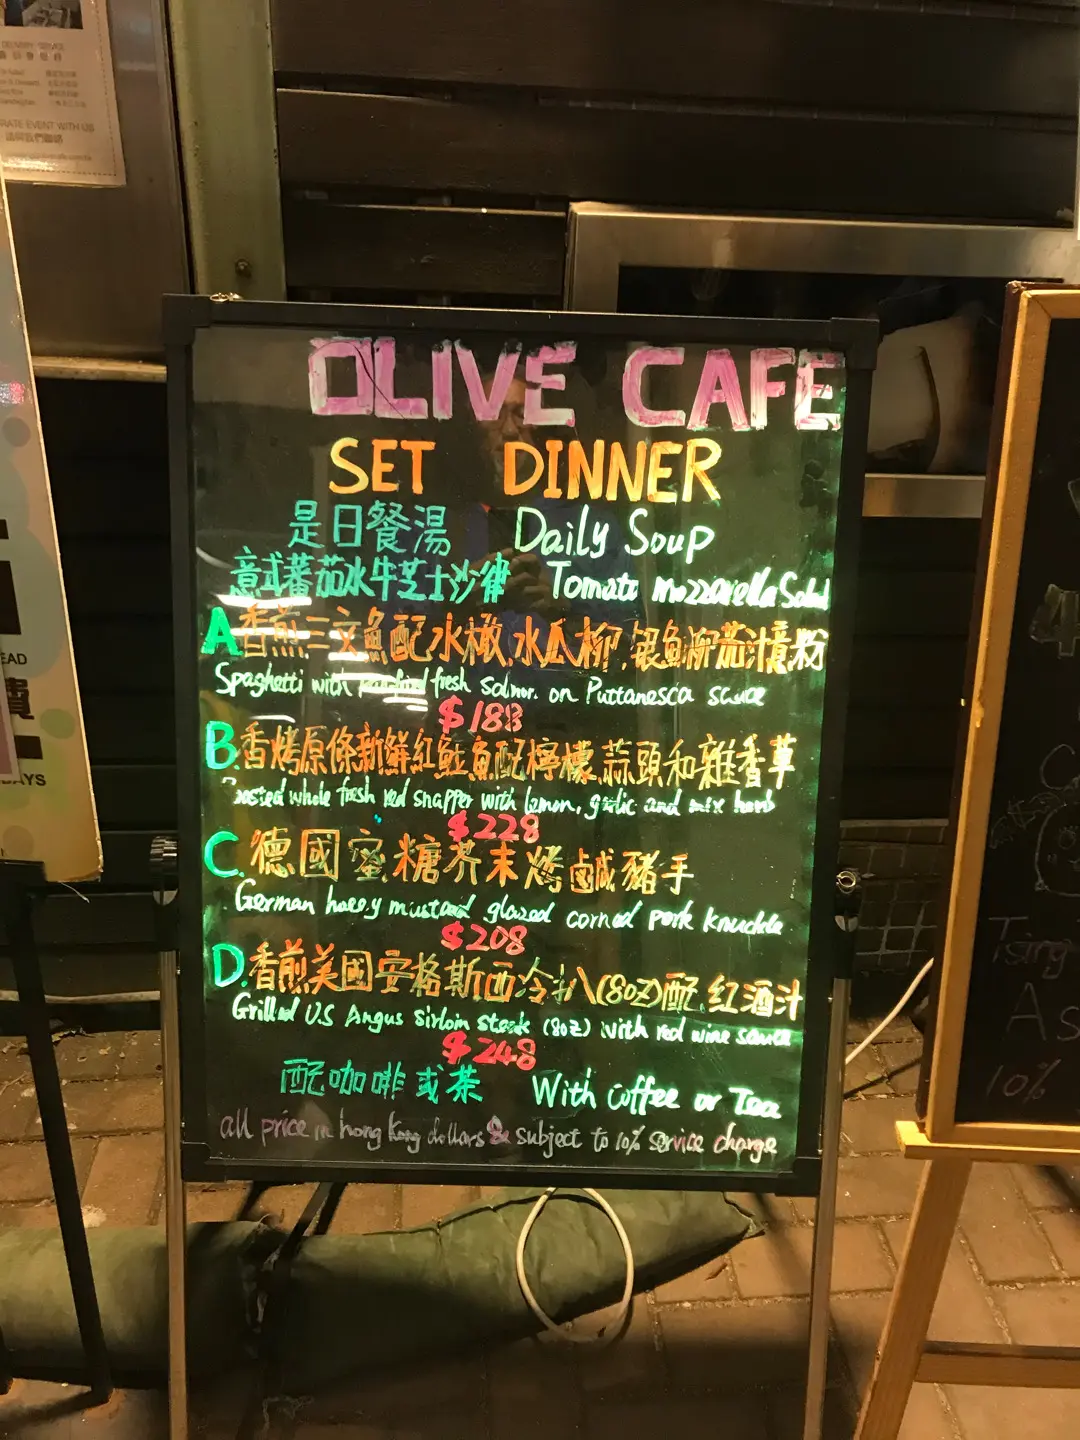 DELIVERY SERVICE
RATE EVENT WITH US
EAD
AYS
OLIVE CAFE
SET DINNER
是日餐湯 Daily Soup
意式蕃茄水牛芝士沙律 Tomato mozzarella Salad
A 香煎三文魚配水橄,水瓜柳,銀魚柳茄汁意粉
Spaghetti with fresh Salmon on Puttanesca sauce
$188
B.香烤原條新鮮紅魚配檸檬,蒜頭和雜香草
Roasted whole fresh red snapper with lemon, garlic and mix herb
$228
C.德國蜜糖芥末烤鹹豬手
German honey mustard glazed corned pork knuckle
$208
D.香煎美國安格斯西冷扒(8oz)配紅酒汁
Grilled U.S Angus Sirloin Steak (8oz) with red wine sauce
$248
配咖啡或茶 With coffee or Tea
all price in hong kong dollars & subject to 10% service charge
Tsing
As
10%